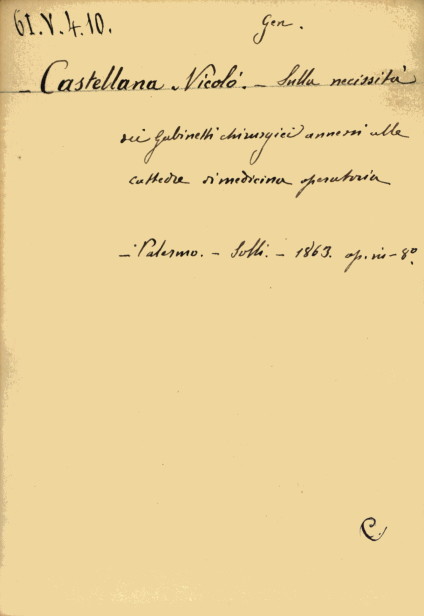 61.V.4.10.
Gen.
- Castellana Nicolò. - Sulla necissità
dei Gabinetti chirurgici annessi alle
cattedre di medicina operatoria
- Palermo. - Solli. - 1863. op. in - 8º.
C.